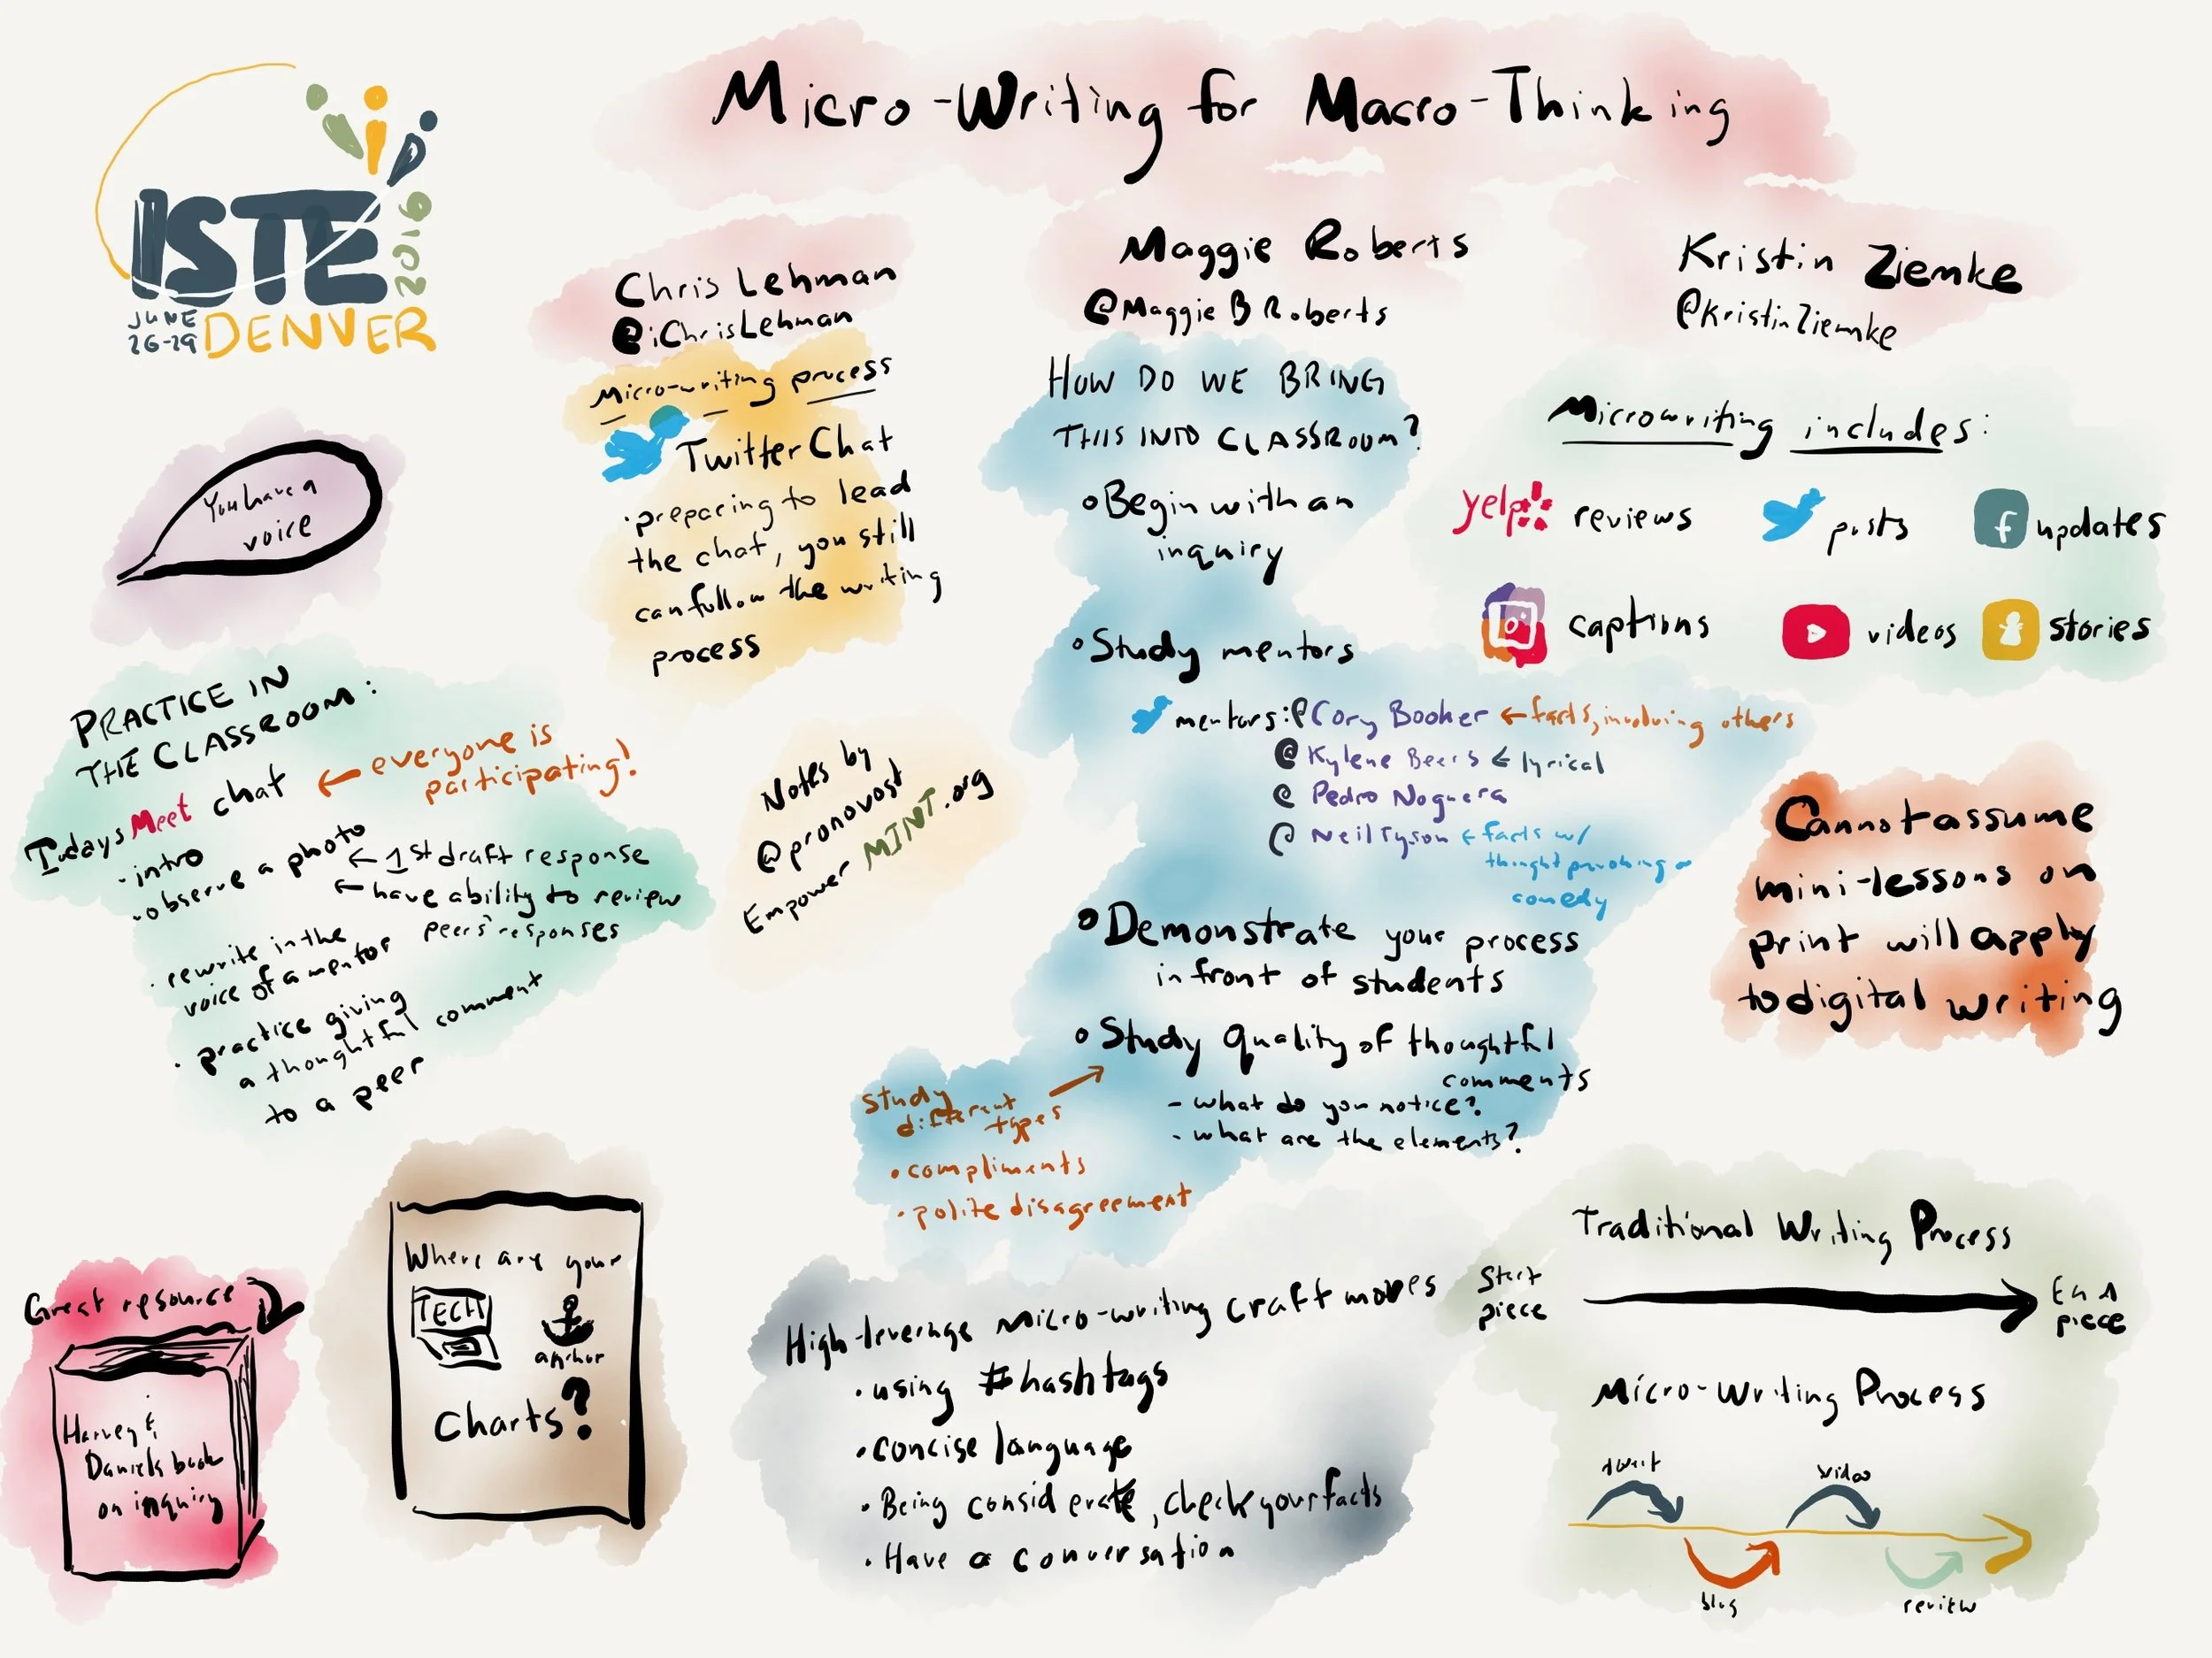 Micro-Writing for Macro-Thinking
ISTE
2016
JUNE
26-29
DENVER
Chris Lehman
@iChrisLehman
Maggie Roberts
@MaggieBRoberts
Kristin Ziemke
@KristinZiemke
You have a
voice
Micro-writing process
Twitter Chat
·preparing to lead
the chat, you still
can follow the writing
process
HOW DO WE BRING
THIS INTO CLASSROOM?
•Begin with an
inquiry
•Study mentors
mentors:@Cory Booker ←facts, involving others
@Kylene Beers ← lyrical
@ Pedro Noguera
@ Neil Tyson ← facts w/
thought provoking
comedy
•Demonstrate your process
in front of students
•Study quality of thoughtful
comments
- what do you notice?
- what are the elements?
study
different
types
•compliments
•polite disagreement
Microwriting includes:
yelp reviews
posts
f updates
captions
videos
stories
PRACTICE IN
THE CLASSROOM:
Todays Meet chat ← everyone is
participating!
·intro
·observe a photo
← 1st draft response
← have ability to review
peers' responses
· rewrite in the
voice of a mentor
· practice giving
a thoughtful comment
to a peer
Notes by
@pronovost
Empower MINT.org
Cannot assume
mini-lessons on
print will apply
to digital writing
Great resource
Harvey &
Daniels book
on inquiry
Where are your
TECH
anchor
Charts?
High-leverage micro-writing craft moves
·using #hashtags
·concise language
·Being considerate, check your facts
·Have a conversation
Traditional Writing Process
Start
piece
End
piece
Micro-Writing Process
tweet
video
blog
review